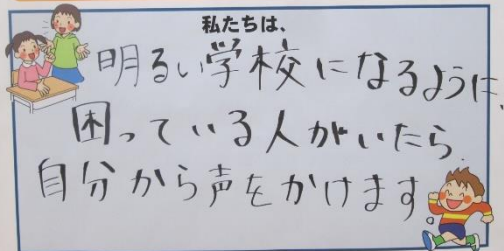 私たちは、
明るい学校になるように、
困っている人がいたら
自分から声をかけます。